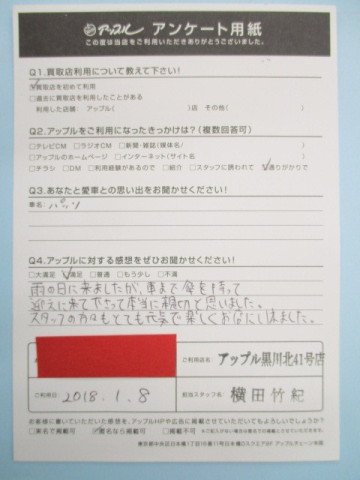 アップル アンケート用紙
この度は当店をご利用いただきありがとうございました。
Q1.買取店利用について教えて下さい!
☑買取店を初めて利用
□過去に買取店を利用したことがある
利用した店舗:アップル( )店 その他( )
Q2.アップルをご利用になったきっかけは?(複数回答可)
□テレビCM □ラジオCM □新聞・雑誌(媒体名/ )
□アップルのホームページ □インターネット(サイト名 )
□チラシ □DM □利用経験があるので □紹介 □スタッフに誘われて ☑通りがかりで
Q3.あなたと愛車との思い出をお聞かせください!
車名/
Q4.アップルに対する感想をぜひお聞かせください!
□大満足 ☑満足 □普通 □もう少し □不満
雨の日に来ましたが、車まで傘を持って
迎えに来て下さって本当に親切と思いました。
スタッフの方々もとても元気で楽しくおはなし出来ました。
ご利用店名/アップル黒川北41号店
ご利用日/2018.1.8
担当スタッフ名/横田竹紀
お客様に書いていただいた感想を、アップルHPや広告に掲載させていただいてもよろしいでしょうか?
□実名で掲載可 ☑匿名なら掲載可 □掲載不可